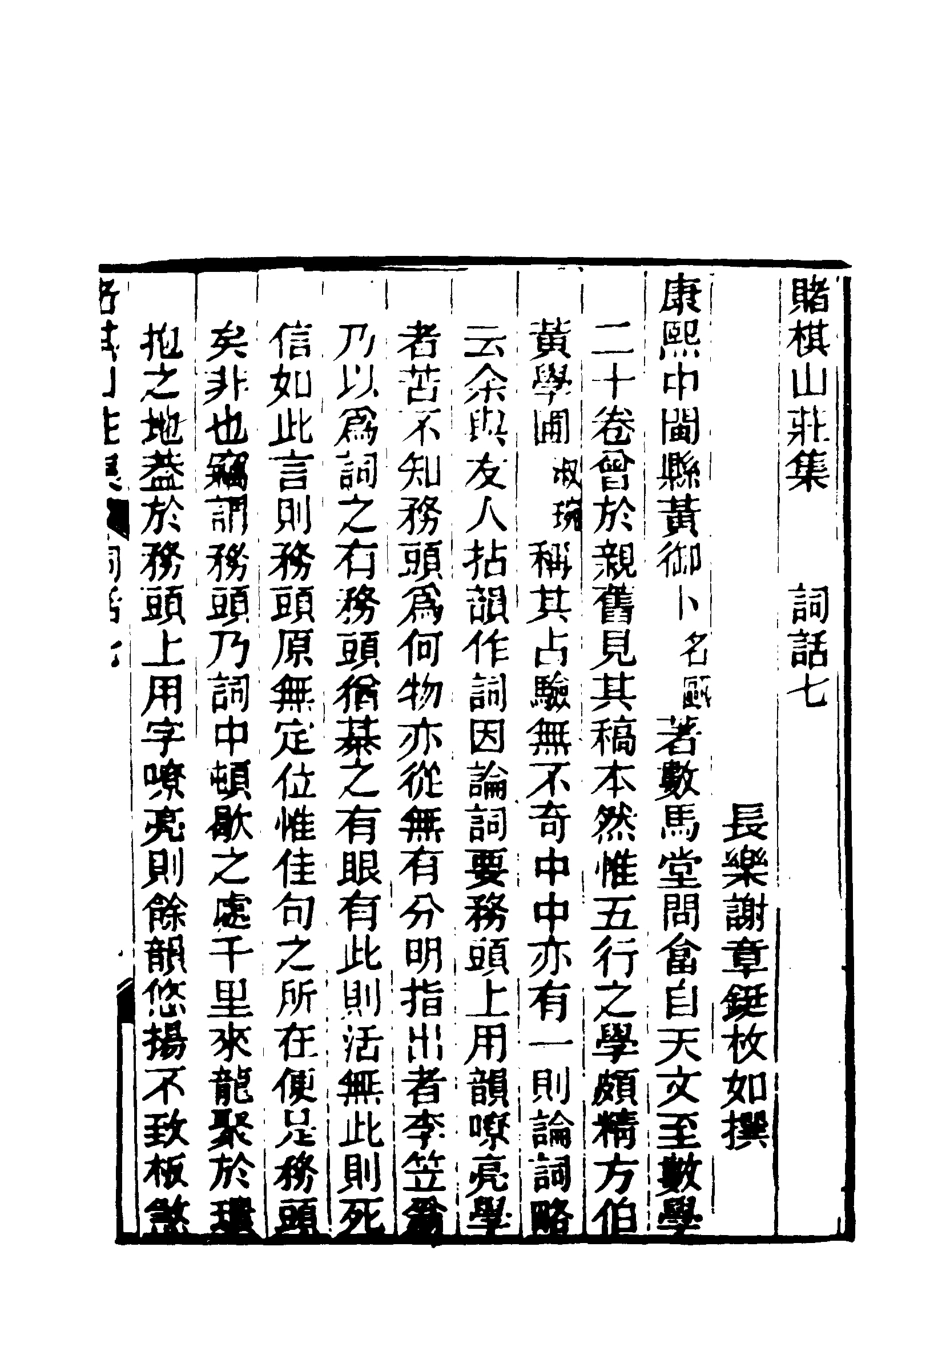 賭棋山莊集　詞話七
長樂謝章鋌枚如撰
康熙中閩縣黃御卜名 著數馬堂問畣自天文至數學
二十卷曾於親舊見其稿本然惟五行之學頗精方伯
黃學圃淑琬稱其占驗無不奇中中亦有一則論詞略
云余與友人拈韻作詞因論詞要務頭上用韻嘹亮學
者苦不知務頭爲何物亦從無有分明指出者李笠翁
乃以爲詞之有務頭猶棊之有眼有此則活無此則死
信如此言則務頭原無定位惟佳句之所在便是務頭
矣非也竊謂務頭乃詞中頓歇之處千里來龍聚於環
抱之地葢於務頭上用字嘹亮則餘韻悠揚不致板煞